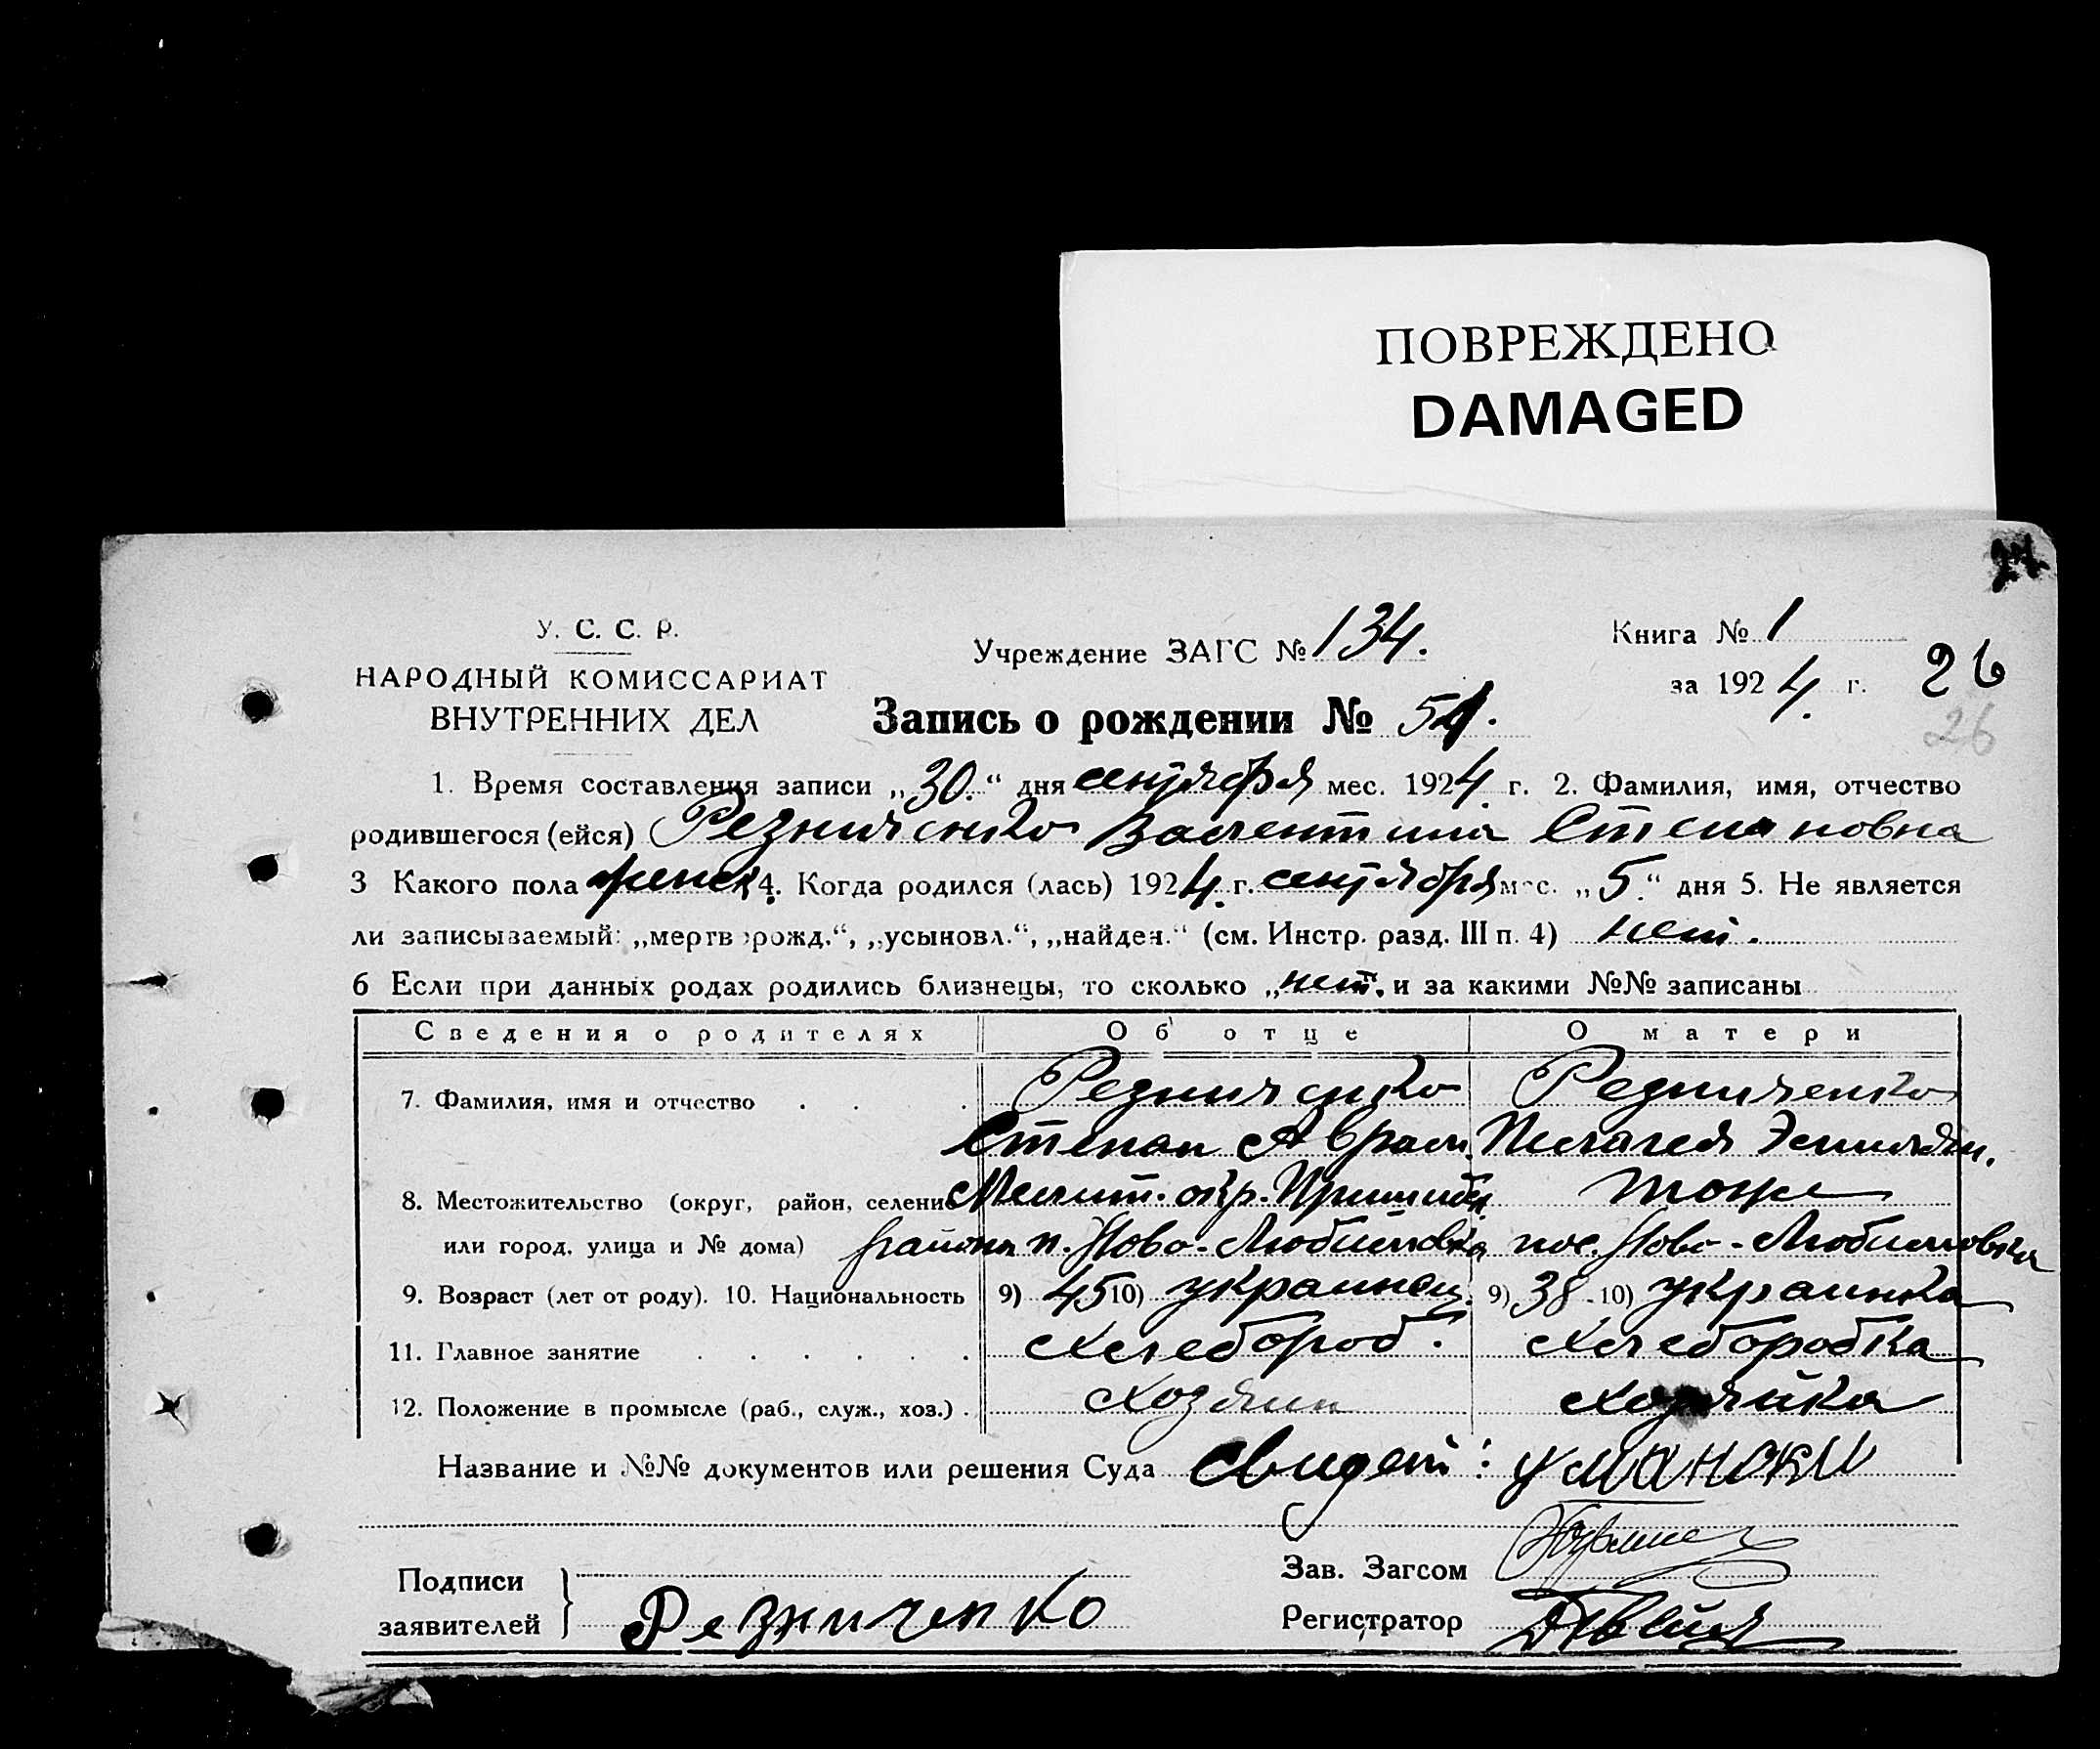 ПОВРЕЖДЕНО
DAMAGED
У. С. С. Р.
НАРОДНЫЙ КОМИССАРИАТ
ВНУТРЕННИХ ДЕЛ
Учреждение ЗАГС № 134.
Книга № 1
за 1924 г. 26
26
Запись о рождении № 51.
1. Время составления записи „30.“ дня сентября мес. 1924 г. 2. Фамилия, имя, отчество
родившегося (ейся) Резниченко Валентина Степановна
3 Какого пола женск 4. Когда родился (лась) 1924 г. сентября мес. „5“ дня 5. Не является
ли записываемый: „мертворожд.“, „усыновл.“, „найден.“ (см. Инстр. разд. III п. 4) нет.
6 Если при данных родах родились близнецы, то сколько „нет. и за какими №№ записаны
Сведения о родителях Об отце О матери
7. Фамилия, имя и отчество . . . Резниченко Резниченко
Степан Аврам. Пилагея Эмильян.
8. Местожительство (округ, район, селение Мелит. окр. Пришиб. тоже
или город, улица и № дома) района п. Ново-Любимовка пос. Ново-Любимовка
9. Возраст (лет от роду). 10. Национальность 9) 45 10) украинец. 9) 38. 10) украинка
11. Главное занятие . . . . . . Хлебороб. Хлеборобка
12. Положение в промысле (раб., служ., хоз.) . Хозяин Хозяйка
Название и №№ документов или решения Суда Свидет: Умански
Подписи
заявителей } Резниченко
Зав. Загсом
Регистратор